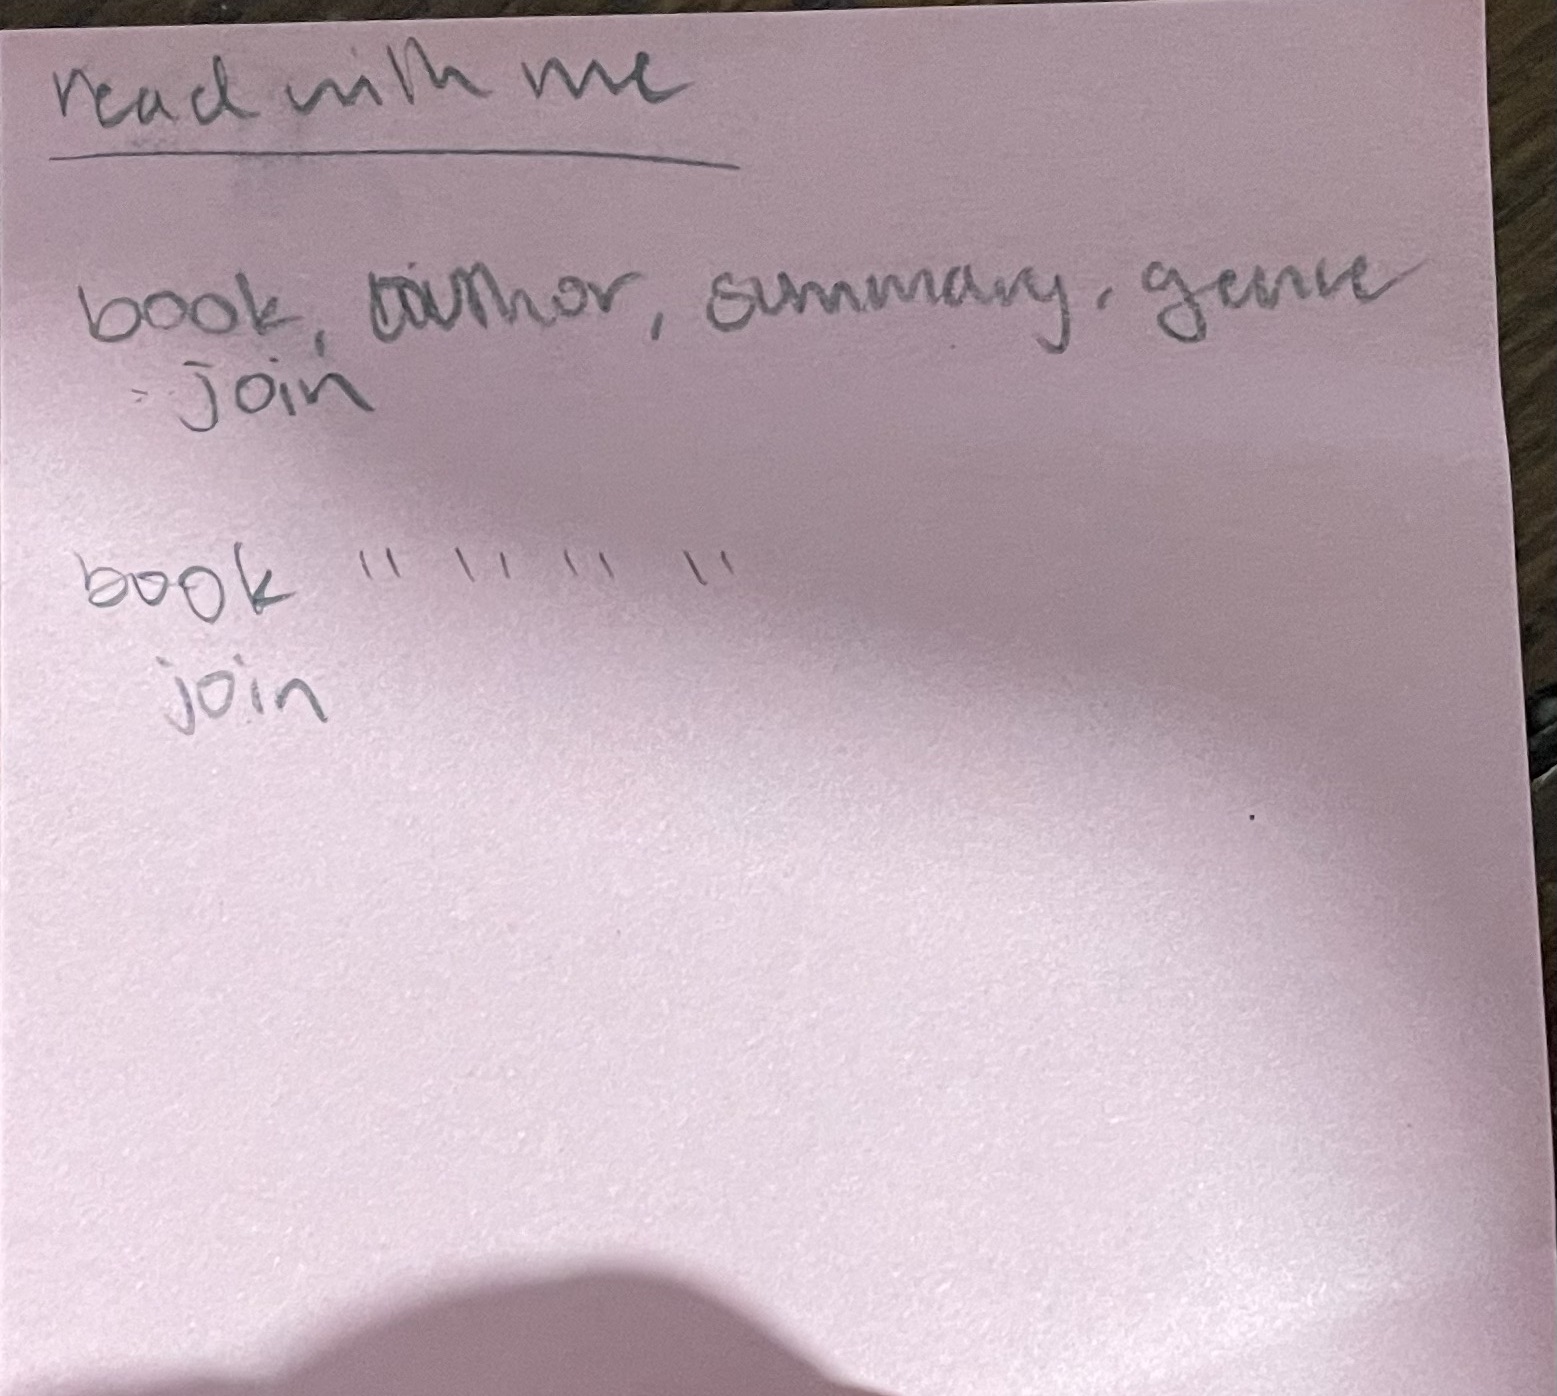 read with me
book, author, summary, genre
- join
book " " " "
join